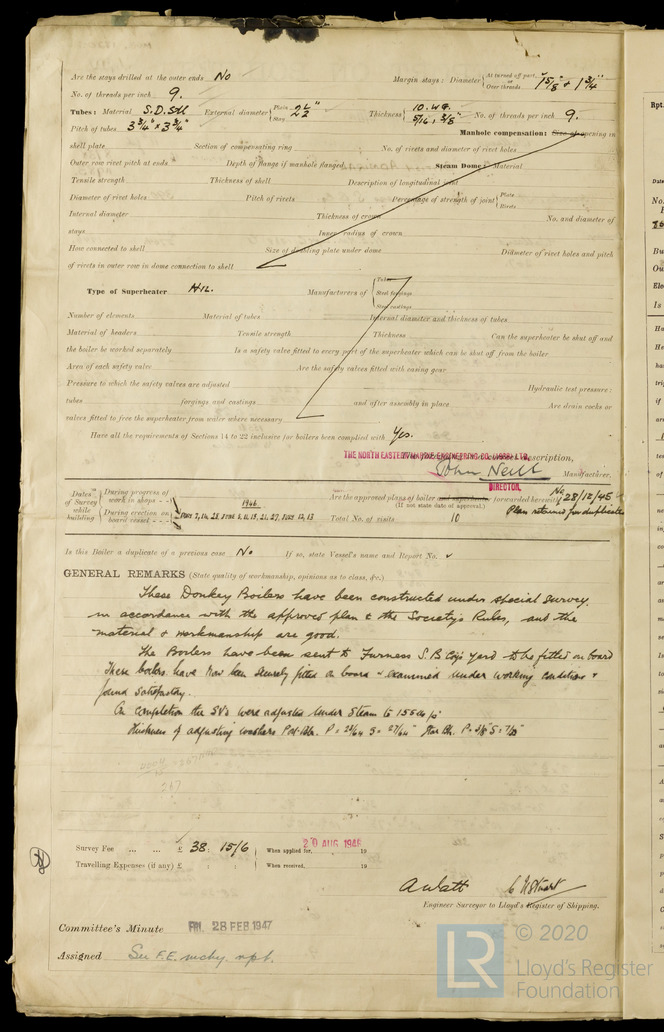 Are the stays drilled at the outer ends No Margin stays: Diameter At turned off part, or Over threads 1 5/8" + 1 3/4"
No. of threads per inch 9.
Tubes: Material S.D. Stl External diameter Plain Stay 2 1/2" Thickness 10. W.G. 5/16, 3/8" No. of threads per inch 9.
Pitch of tubes 3 3/4" x 3 3/4" Manhole compensation: Size of opening in
shell plate Section of compensating ring No. of rivets and diameter of rivet holes
Outer row rivet pitch at ends Depth of flange if manhole flanged Steam Dome: Material
Tensile strength Thickness of shell Description of longitudinal joint
Diameter of rivet holes Pitch of rivets Percentage of strength of joint Plate Rivets
Internal diameter Thickness of crown No. and diameter of
stays Inner radius of crown
How connected to shell Size of doubling plate under dome Diameter of rivet holes and pitch
of rivets in outer row in dome connection to shell
Type of Superheater Nil. Manufacturers of Tubes Steel forgings Steel castings
Number of elements Material of tubes Internal diameter and thickness of tubes
Material of headers Tensile strength Thickness Can the superheater be shut off and
the boiler be worked separately Is a safety valve fitted to every part of the superheater which can be shut off from the boiler
Area of each safety valve Are the safety valves fitted with easing gear
Pressure to which the safety valves are adjusted Hydraulic test pressure:
tubes forgings and castings and after assembly in place Are drain cocks or
valves fitted to free the superheater from water where necessary
Have all the requirements of Sections 14 to 22 inclusive for boilers been complied with Yes.
THE NORTH EASTERN MARINE ENGINEERING CO. (1938) LTD. description,
John Neill Manufacturer.
DIRECTOR.
Dates of Survey while building During progress of work in shops - - During erection on board vessel - - - 1946 Are the approved plans of boiler and superheater forwarded herewith No 28/12/45
(If not state date of approval.) Plan retained for duplicate
Total No. of visits 10
Is this Boiler a duplicate of a previous case No If so, state Vessel's name and Report No.
GENERAL REMARKS (State quality of workmanship, opinions as to class, &c.)
These Donkey Boilers have been constructed under special survey.
in accordance with the approved plan & the Society's Rules, and the
material & workmanship are good.
The Boilers have been sent to Furness S.B. Coy's yard to be fitted on board
These boilers have now been securely fitted on board & examined under working conditions &
found satisfactory.
On completion the SVs were adjusted under steam to 155
Thickness of adjusting washers Port
Survey Fee ... ... £ 38 : 15/6 When applied for, 20 AUG 1946 19
Travelling Expenses (if any) £ : : When received, 19
A Watt
Engineer Surveyor to Lloyd's Register of Shipping.
Committee's Minute FRI. 28 FEB 1947
Assigned See F.E. mchy. rpt.
LR © 2020
Lloyd's Register
Foundation